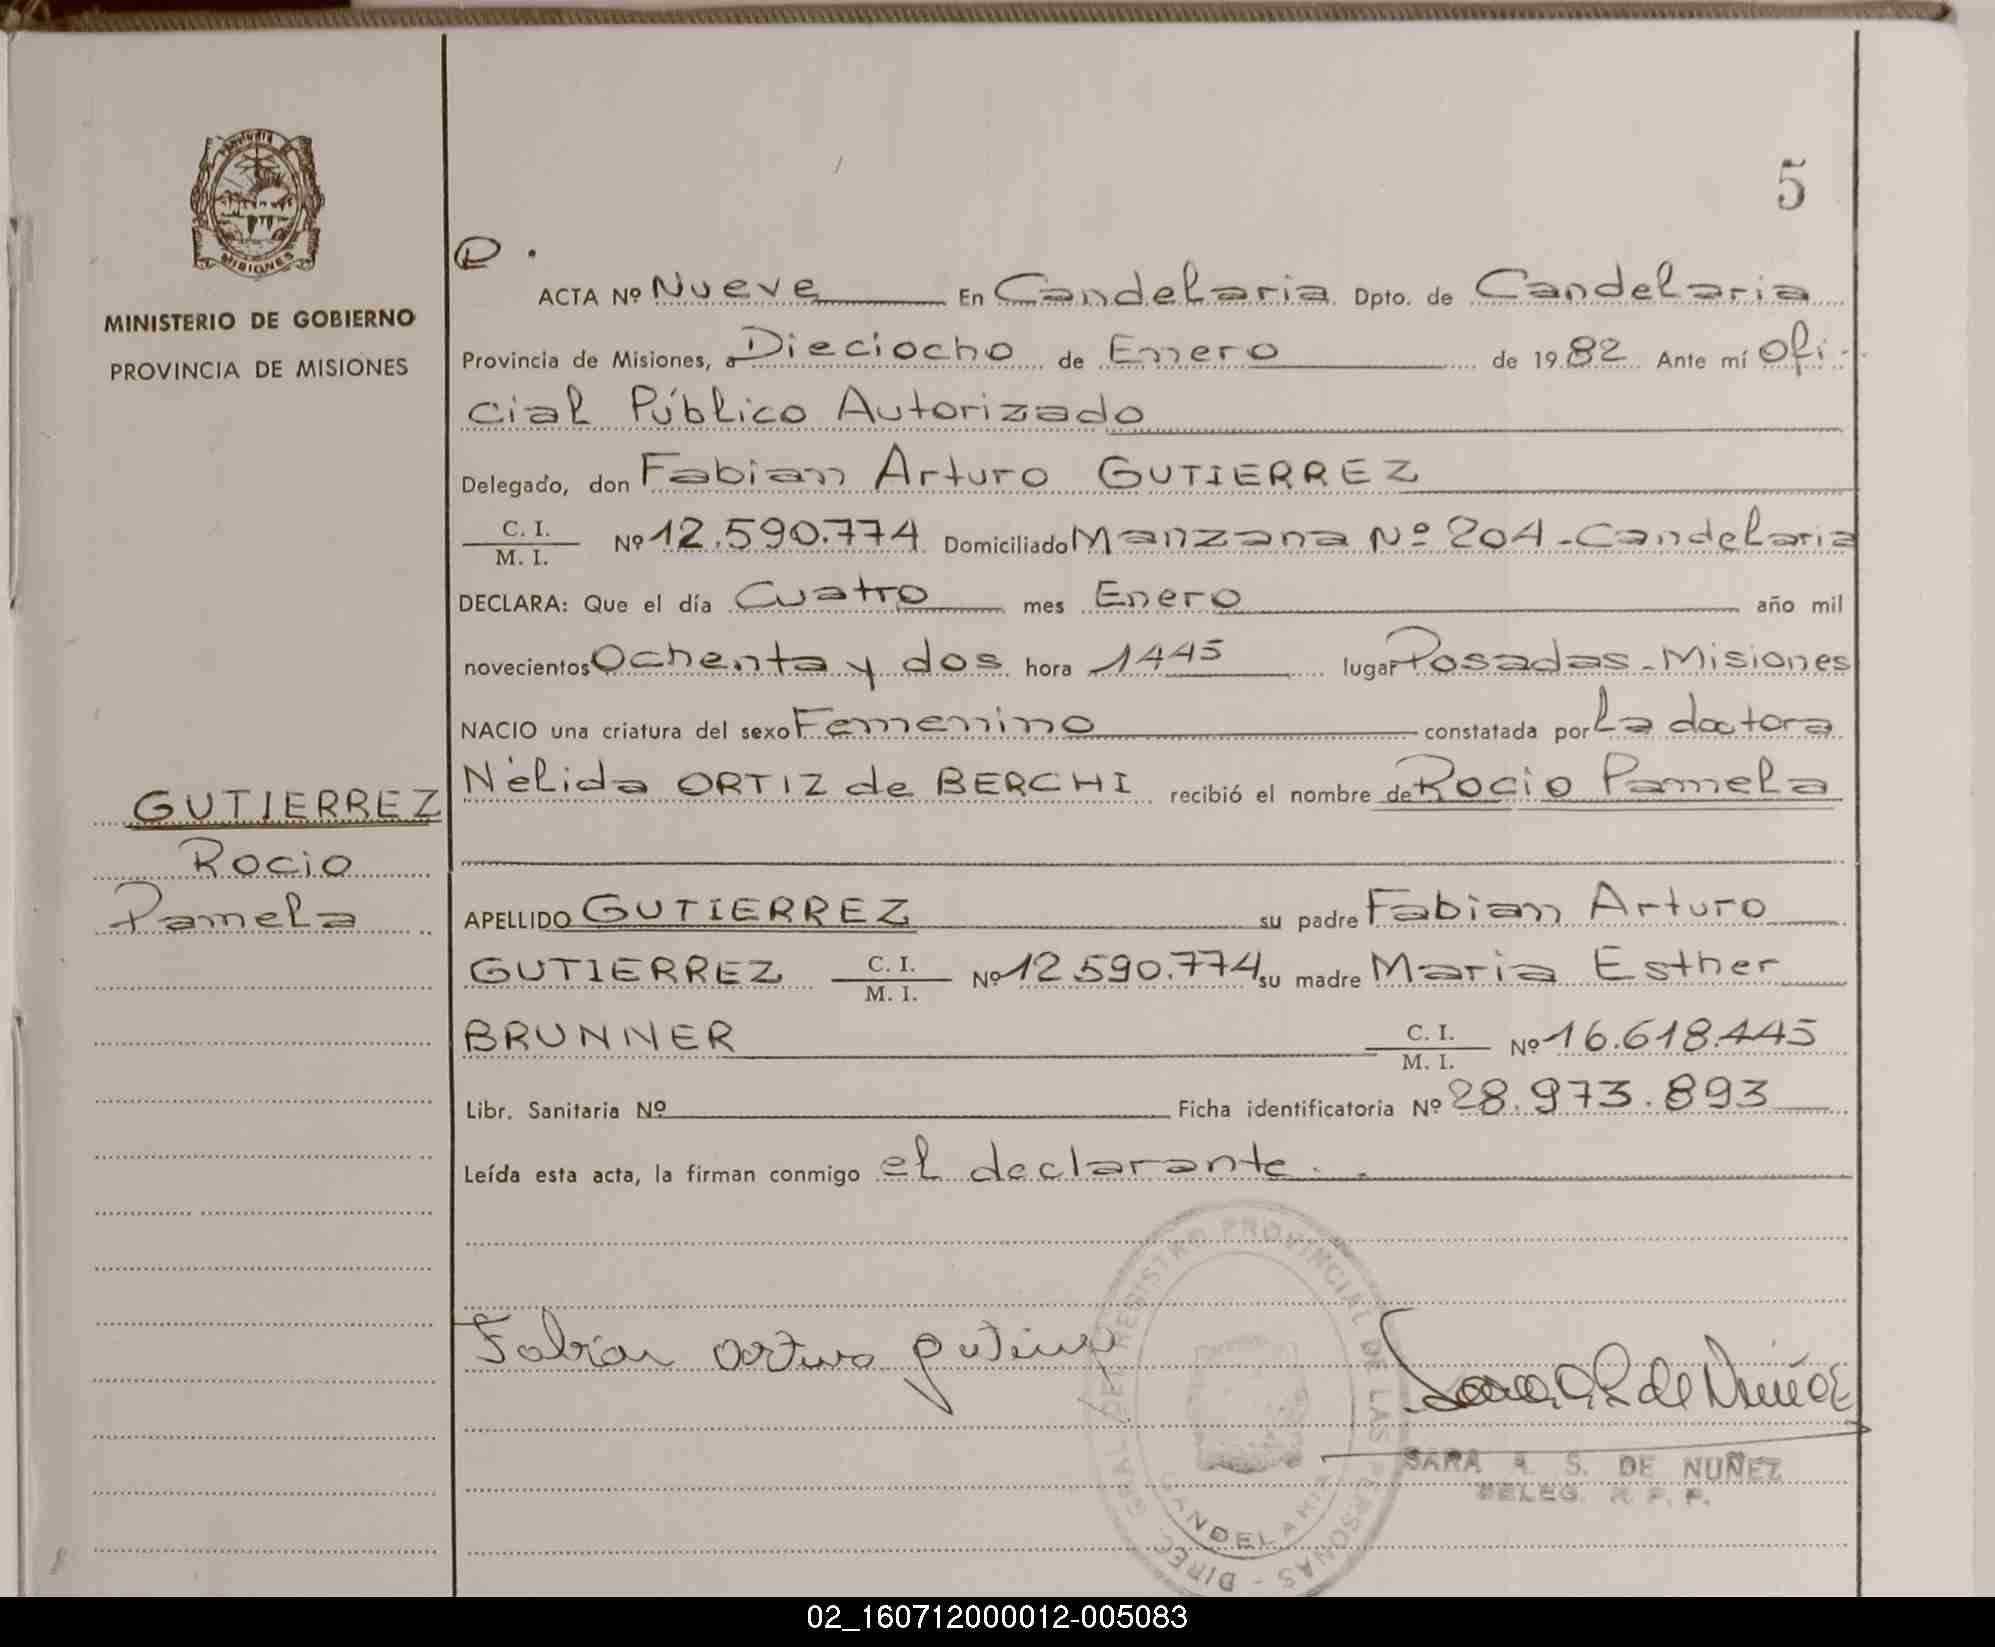 5
Providia
MISIONES
MINISTERIO DE GOBIERNO
PROVINCIA DE MISIONES
GUTIERREZ
Rocio
Pamela
D.
ACTA Nº Nueve En Candelaria Dpto. de Candelaria
Provincia de Misiones, a Dieciocho de Enero de 1982 Ante mí ofi-
cial Público Autorizado
Delegado, don Fabian Arturo GUTIERREZ
C. I.
M. I. Nº 12.590.774 Domiciliado Manzana Nº 204-Candelaria
DECLARA: Que el día Cuatro mes Enero año mil
novecientos Ochenta y dos hora 1445 lugar Posadas-Misiones
NACIO una criatura del sexo Femenino constatada por La doctora
Nélida ORTIZ de BERCHI recibió el nombre de Rocio Pamela
APELLIDO GUTIERREZ su padre Fabian Arturo
GUTIERREZ C. I. M. I. Nº 12.590.774 su madre Maria Esther
BRUNNER C. I. M. I. Nº 16.618.445
Libr. Sanitaria Nº Ficha identificatoria Nº 28.973.893
Leída esta acta, la firman conmigo el declarante.
Fabian Arturo Gutierrez
SARA A. S. DE NUÑEZ
DELEG. R. P. P.
DIREC. GRAL. DEL REGISTRO PROVINCIAL DE LAS PERSONAS -
CANDELARIA
02_160712000012-005083